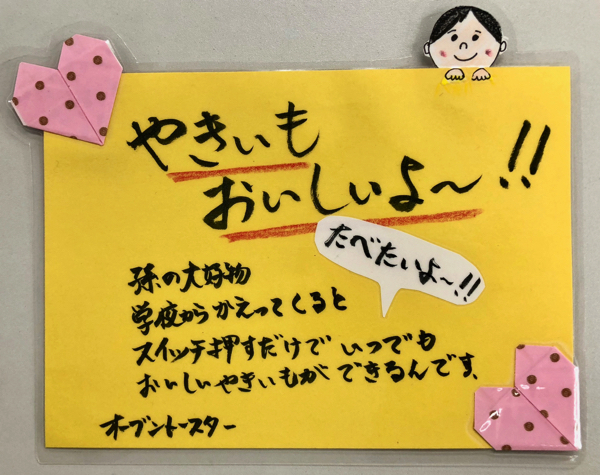 やきいも
おいしいよ〜!!
たべたいよ〜!!
孫の大好物
学校からかえってくると
スイッチ押すだけで いつでも
おいしいやきいもが できるんです、
オーブントースター